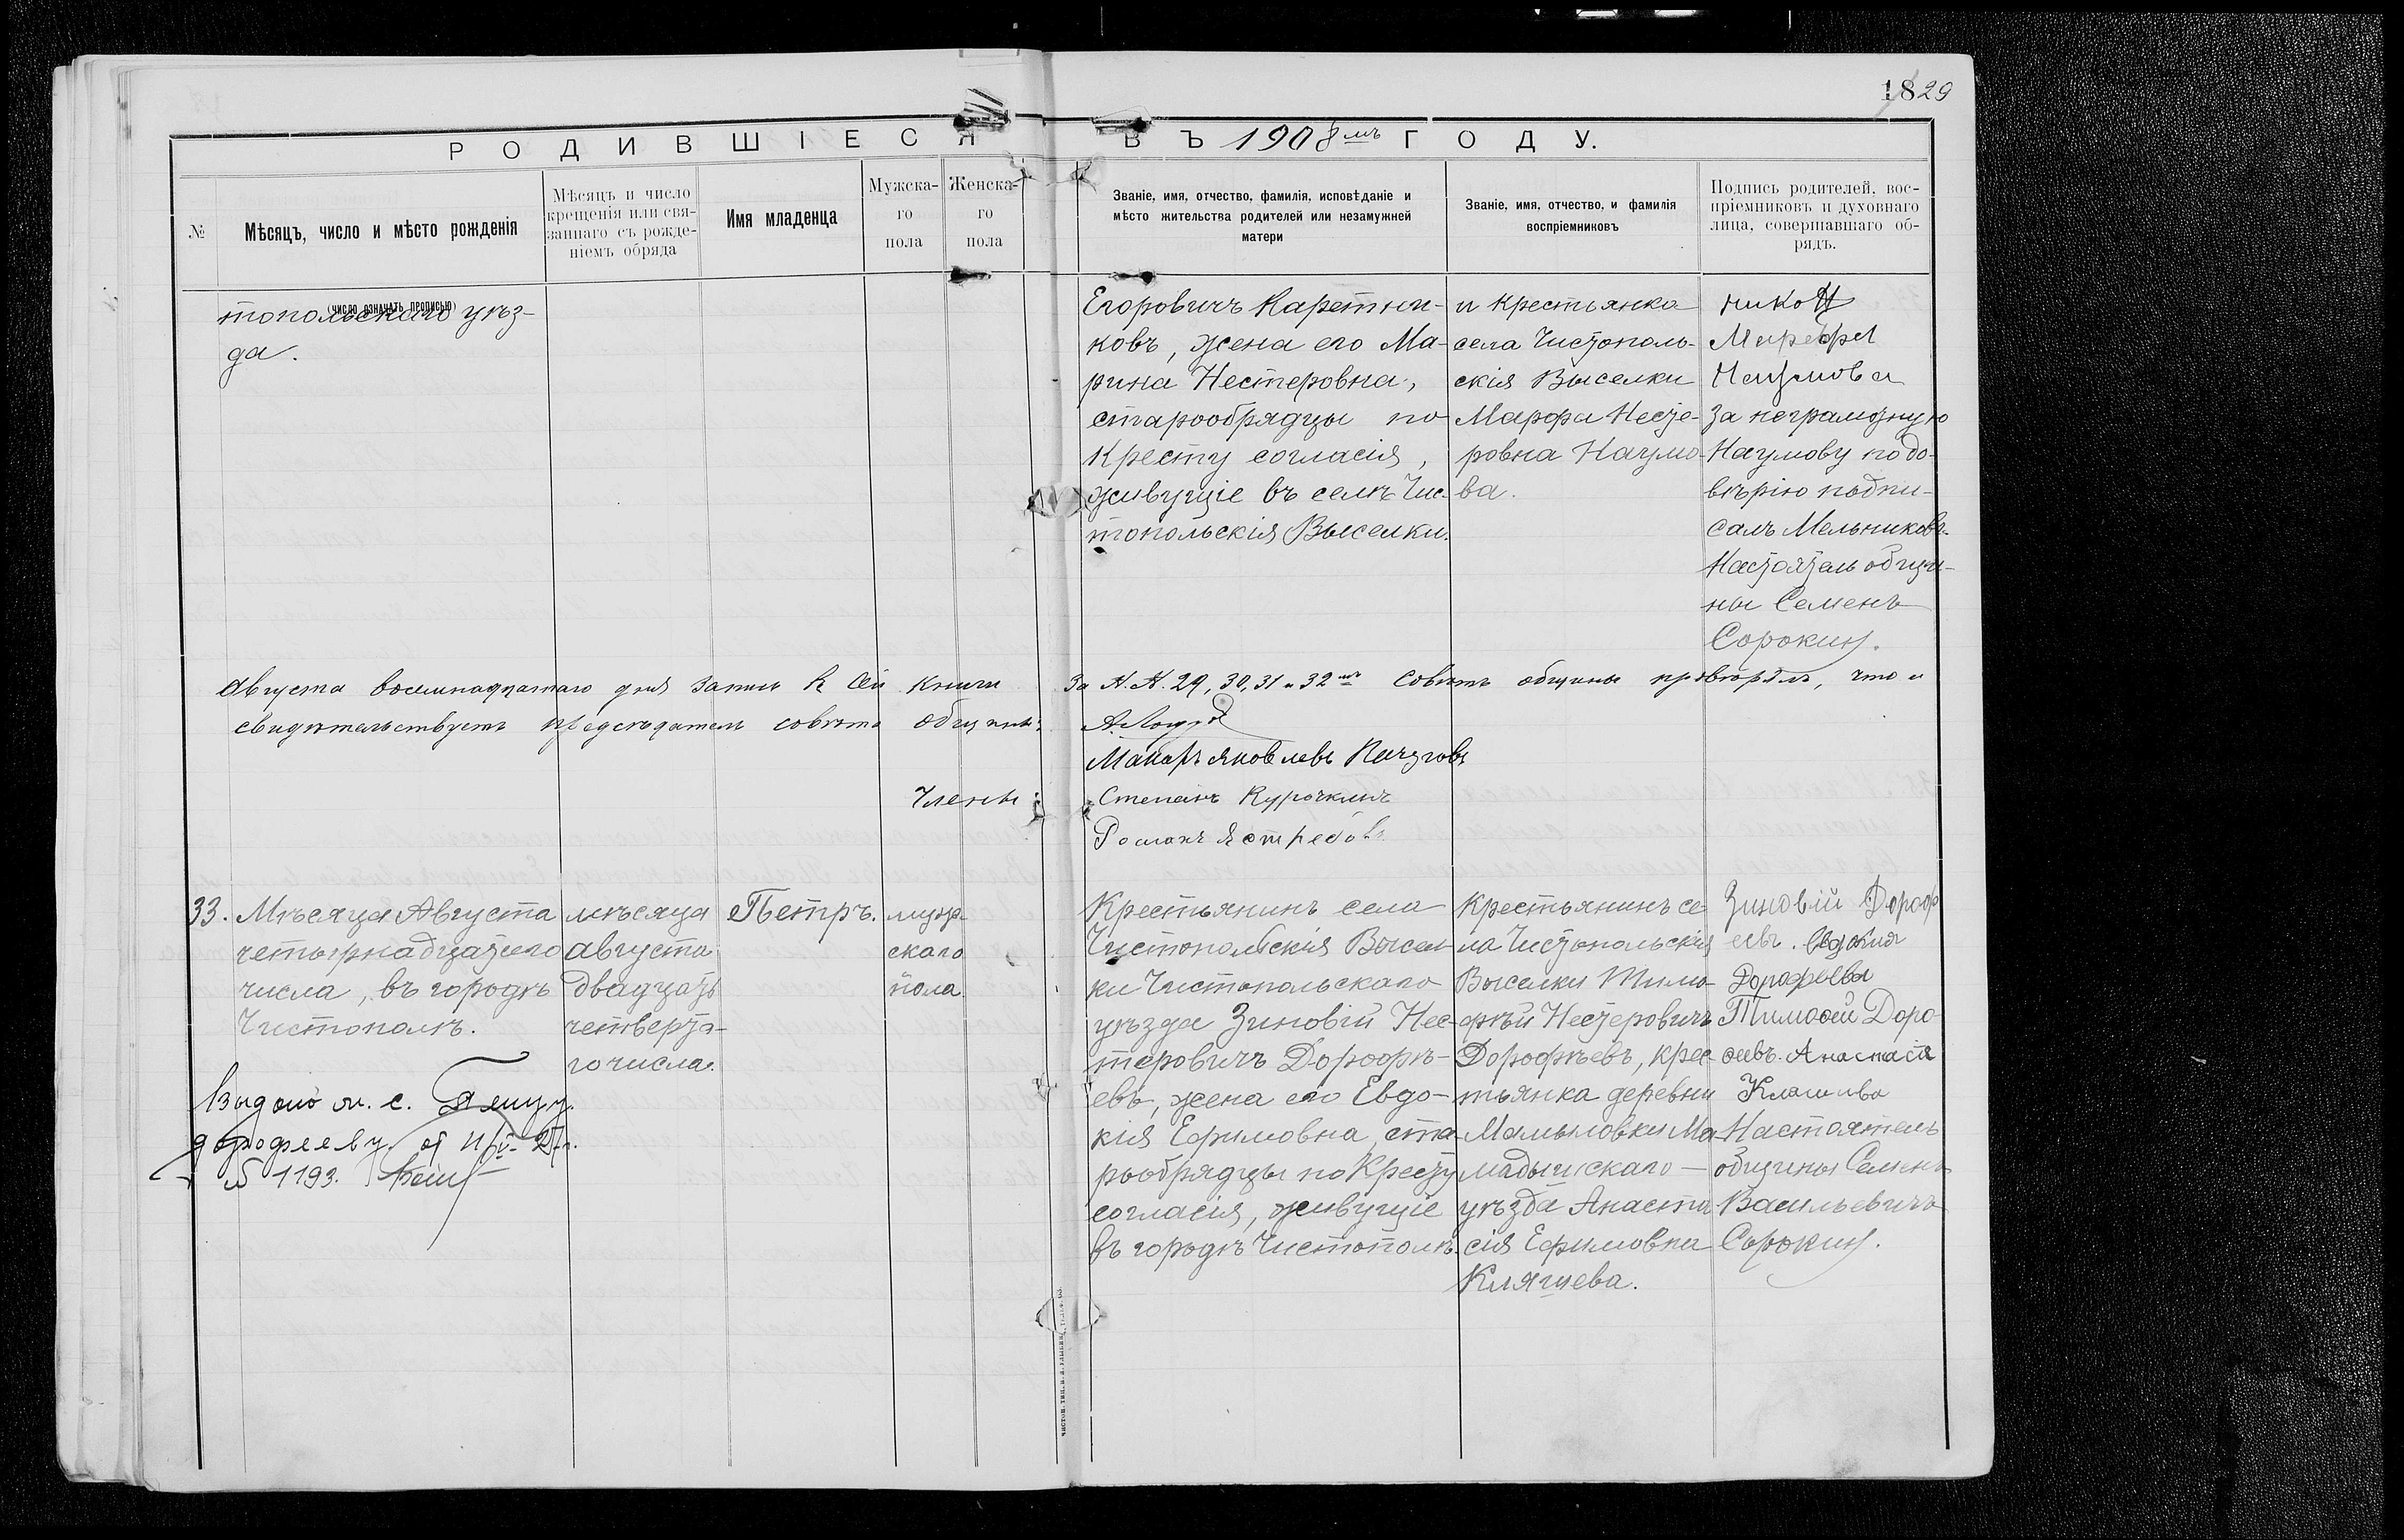 1829
РОДИВШІЕСЯ ВЪ 1908мъ ГОДУ.
№
Мѣсяцъ, число и мѣсто рожденія
(число означать прописью)
Мѣсяцъ и число
крещенія или свя-
заннаго съ рожде-
ніемъ обряда
Имя младенца
Мужска-
го
пола
Женска-
го
пола
Званіе, имя, отчество, фамилія, исповѣданіе и
мѣсто жительства родителей или незамужней
матери
Званіе, имя, отчество, и фамилія
воспріемниковъ
Подпись родителей, вос-
пріемниковъ и духовнаго
лица, совершавшаго об-
рядъ.
топольскаго уѣз-
да.
Егоровичъ Каретни-
ковъ, жена его Ма-
рина Нестеровна,
старообрядцы по
Кресту согласія,
живущіе въ селѣ Чис-
топольскія Выселки.
и крестьянка
села Чистополь-
скія Выселки
Марфа Несте-
ровна Наумо-
ва.
Наумова
за неграмотную
Наумову по до-
вѣрію подпи-
салъ Мельниковъ.
Настоятель общи-
ны Семенъ
Сорокинъ.
Августа восемнадцатаго дня запись въ сей книги за №№ 29, 30, 31 и 32мъ Совѣтъ общины провѣрялъ, что и
свидѣтельствуетъ предсѣдатель совѣта общины:
Макаръ Яковлевъ
Члены: Степанъ Курочкинъ
Романъ Ястребовъ
33.
Мѣсяца Августа
четырнадцатаго
числа, въ городѣ
Чистополѣ.
мѣсяца
августа
двадцать
четверта-
го числа.
Петръ.
муж-
скаго
пола
Крестьянинъ села
Чистопольскія Высел-
ки Чистопольскаго
уѣзда Зиновій Нес-
теровичъ Дорофѣ-
евъ, жена его Евдо-
кія Ефимовна, ста-
рообрядцы по Кресту
согласія, живущіе
въ городѣ Чистополѣ.
Крестьянинъ се-
ла Чистопольскія
Выселки Тимо-
фѣй Нестеровичъ
Дорофѣевъ, крес-
тьянка деревни
Мамыловки Ма-
мадышскаго
уѣзда Анаста-
сія Ефимовна
Клягцева.
Зиновій Дороф
еевъ. Евдокия
Дорофеева
Тимофей Доро
феевъ. Анастасія
Настоятель
общины Семенъ
Васильевичъ
Сорокинъ.
Выдано м. с.
Дорофееву от
№ 1193.